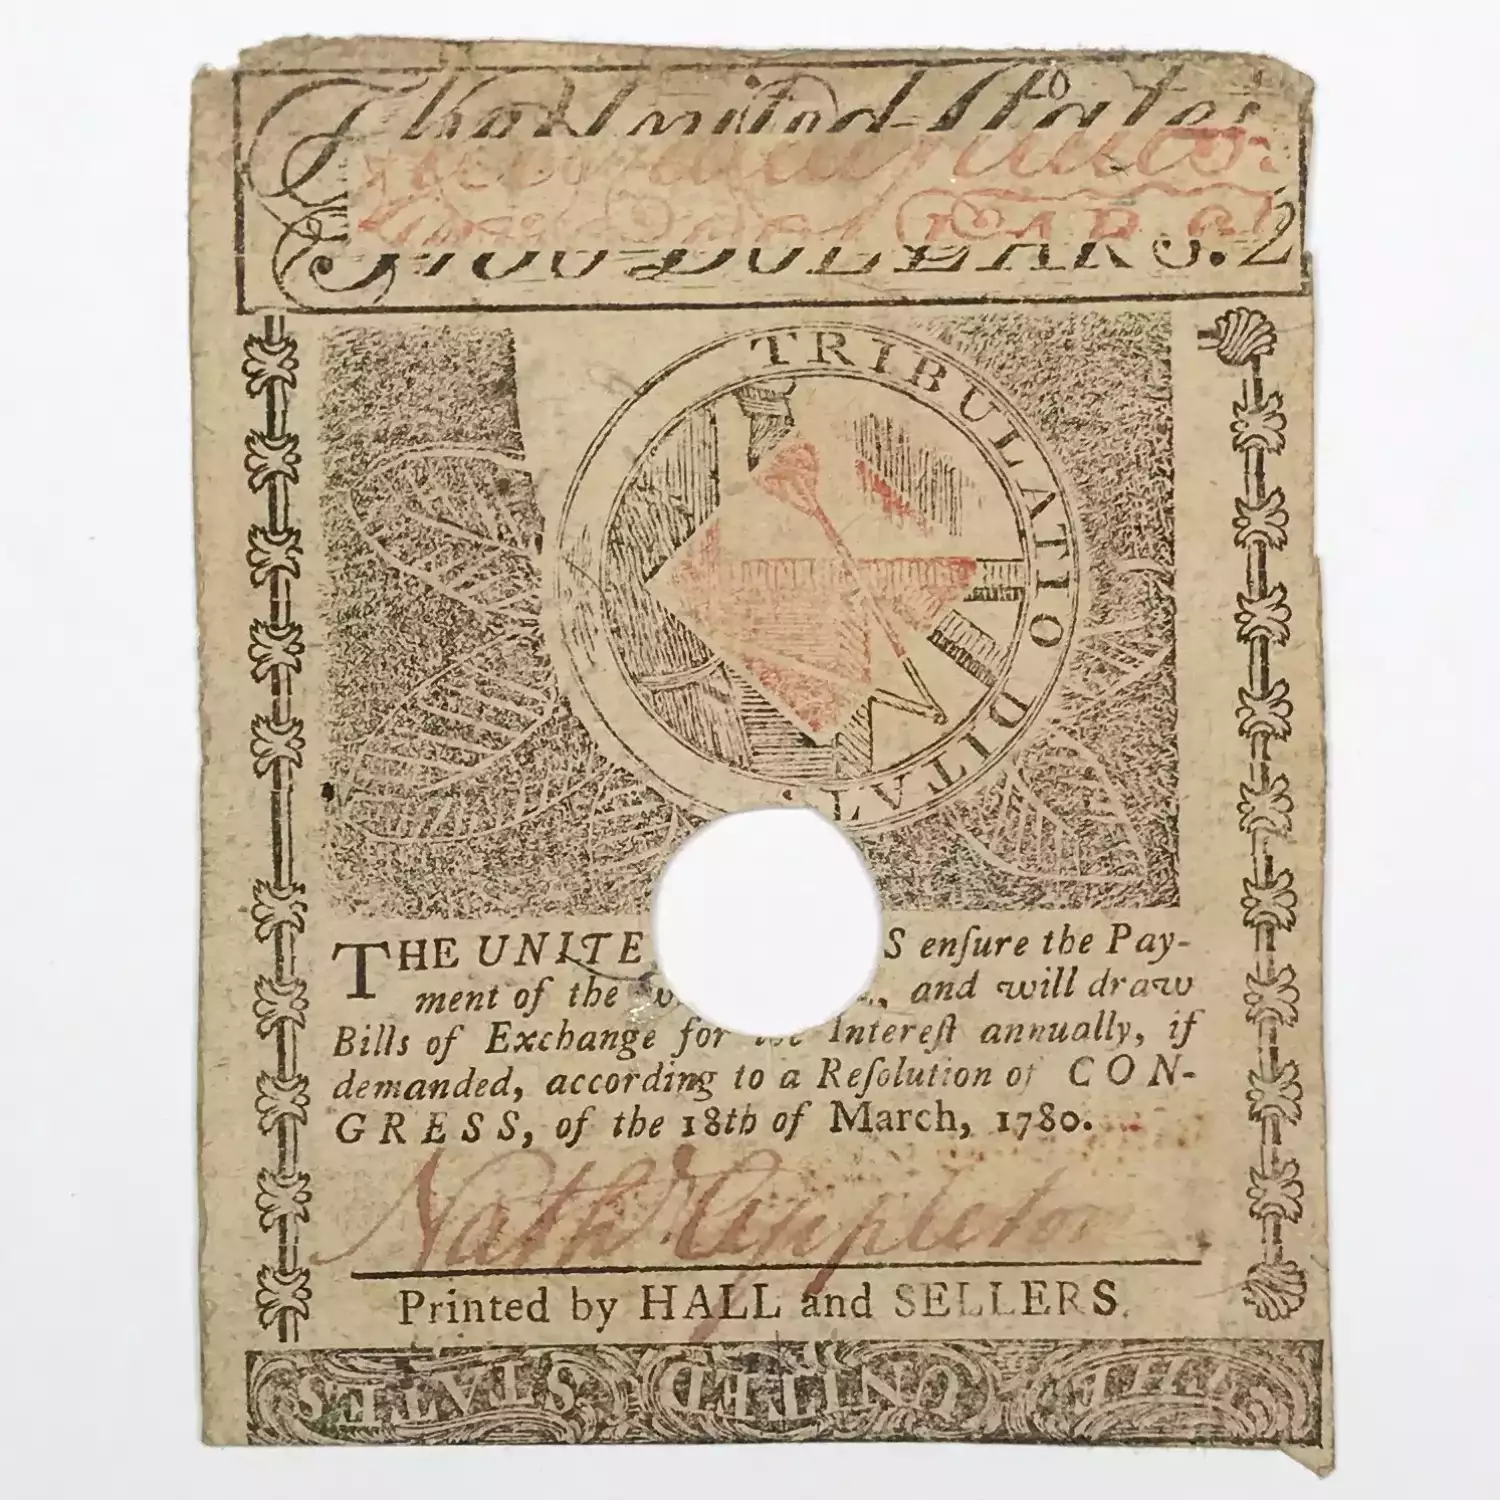 The United States
TWO DOLLARS. 2
TRIBULATIO DITAT
THE UNITE S enſure the Pay-
ment of the , and will draw
Bills of Exchange for the Intereſt annually, if
demanded, according to a Reſolution of CON-
GRESS, of the 18th of March, 1780.
Nath Appleton
Printed by HALL and SELLERS.
THE UNITED STATES